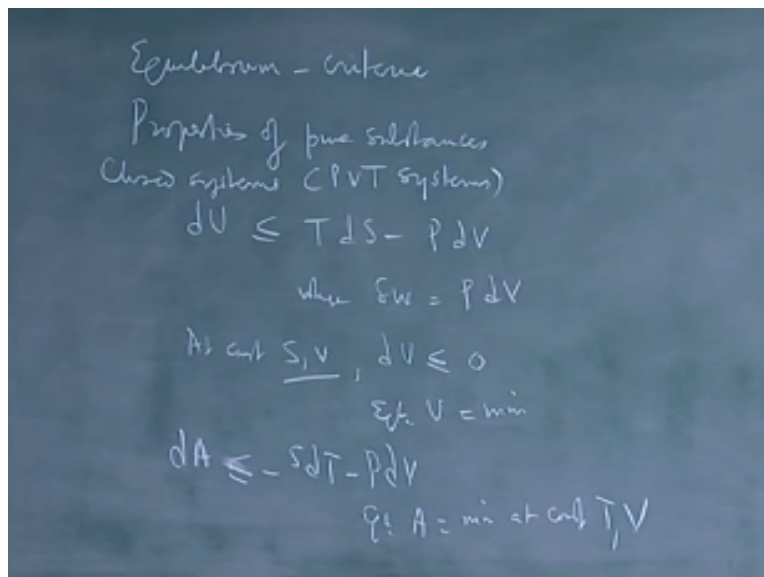 Equilibrium - criteria
Properties of pure substances
Closed systems (PVT systems)
dU ≤ TdS - PdV
where δw = PdV
At const S, V, dU ≤ 0
Eqb. U = min
dA ≤ - SdT - PdV
Eqb. A = min at const T, V